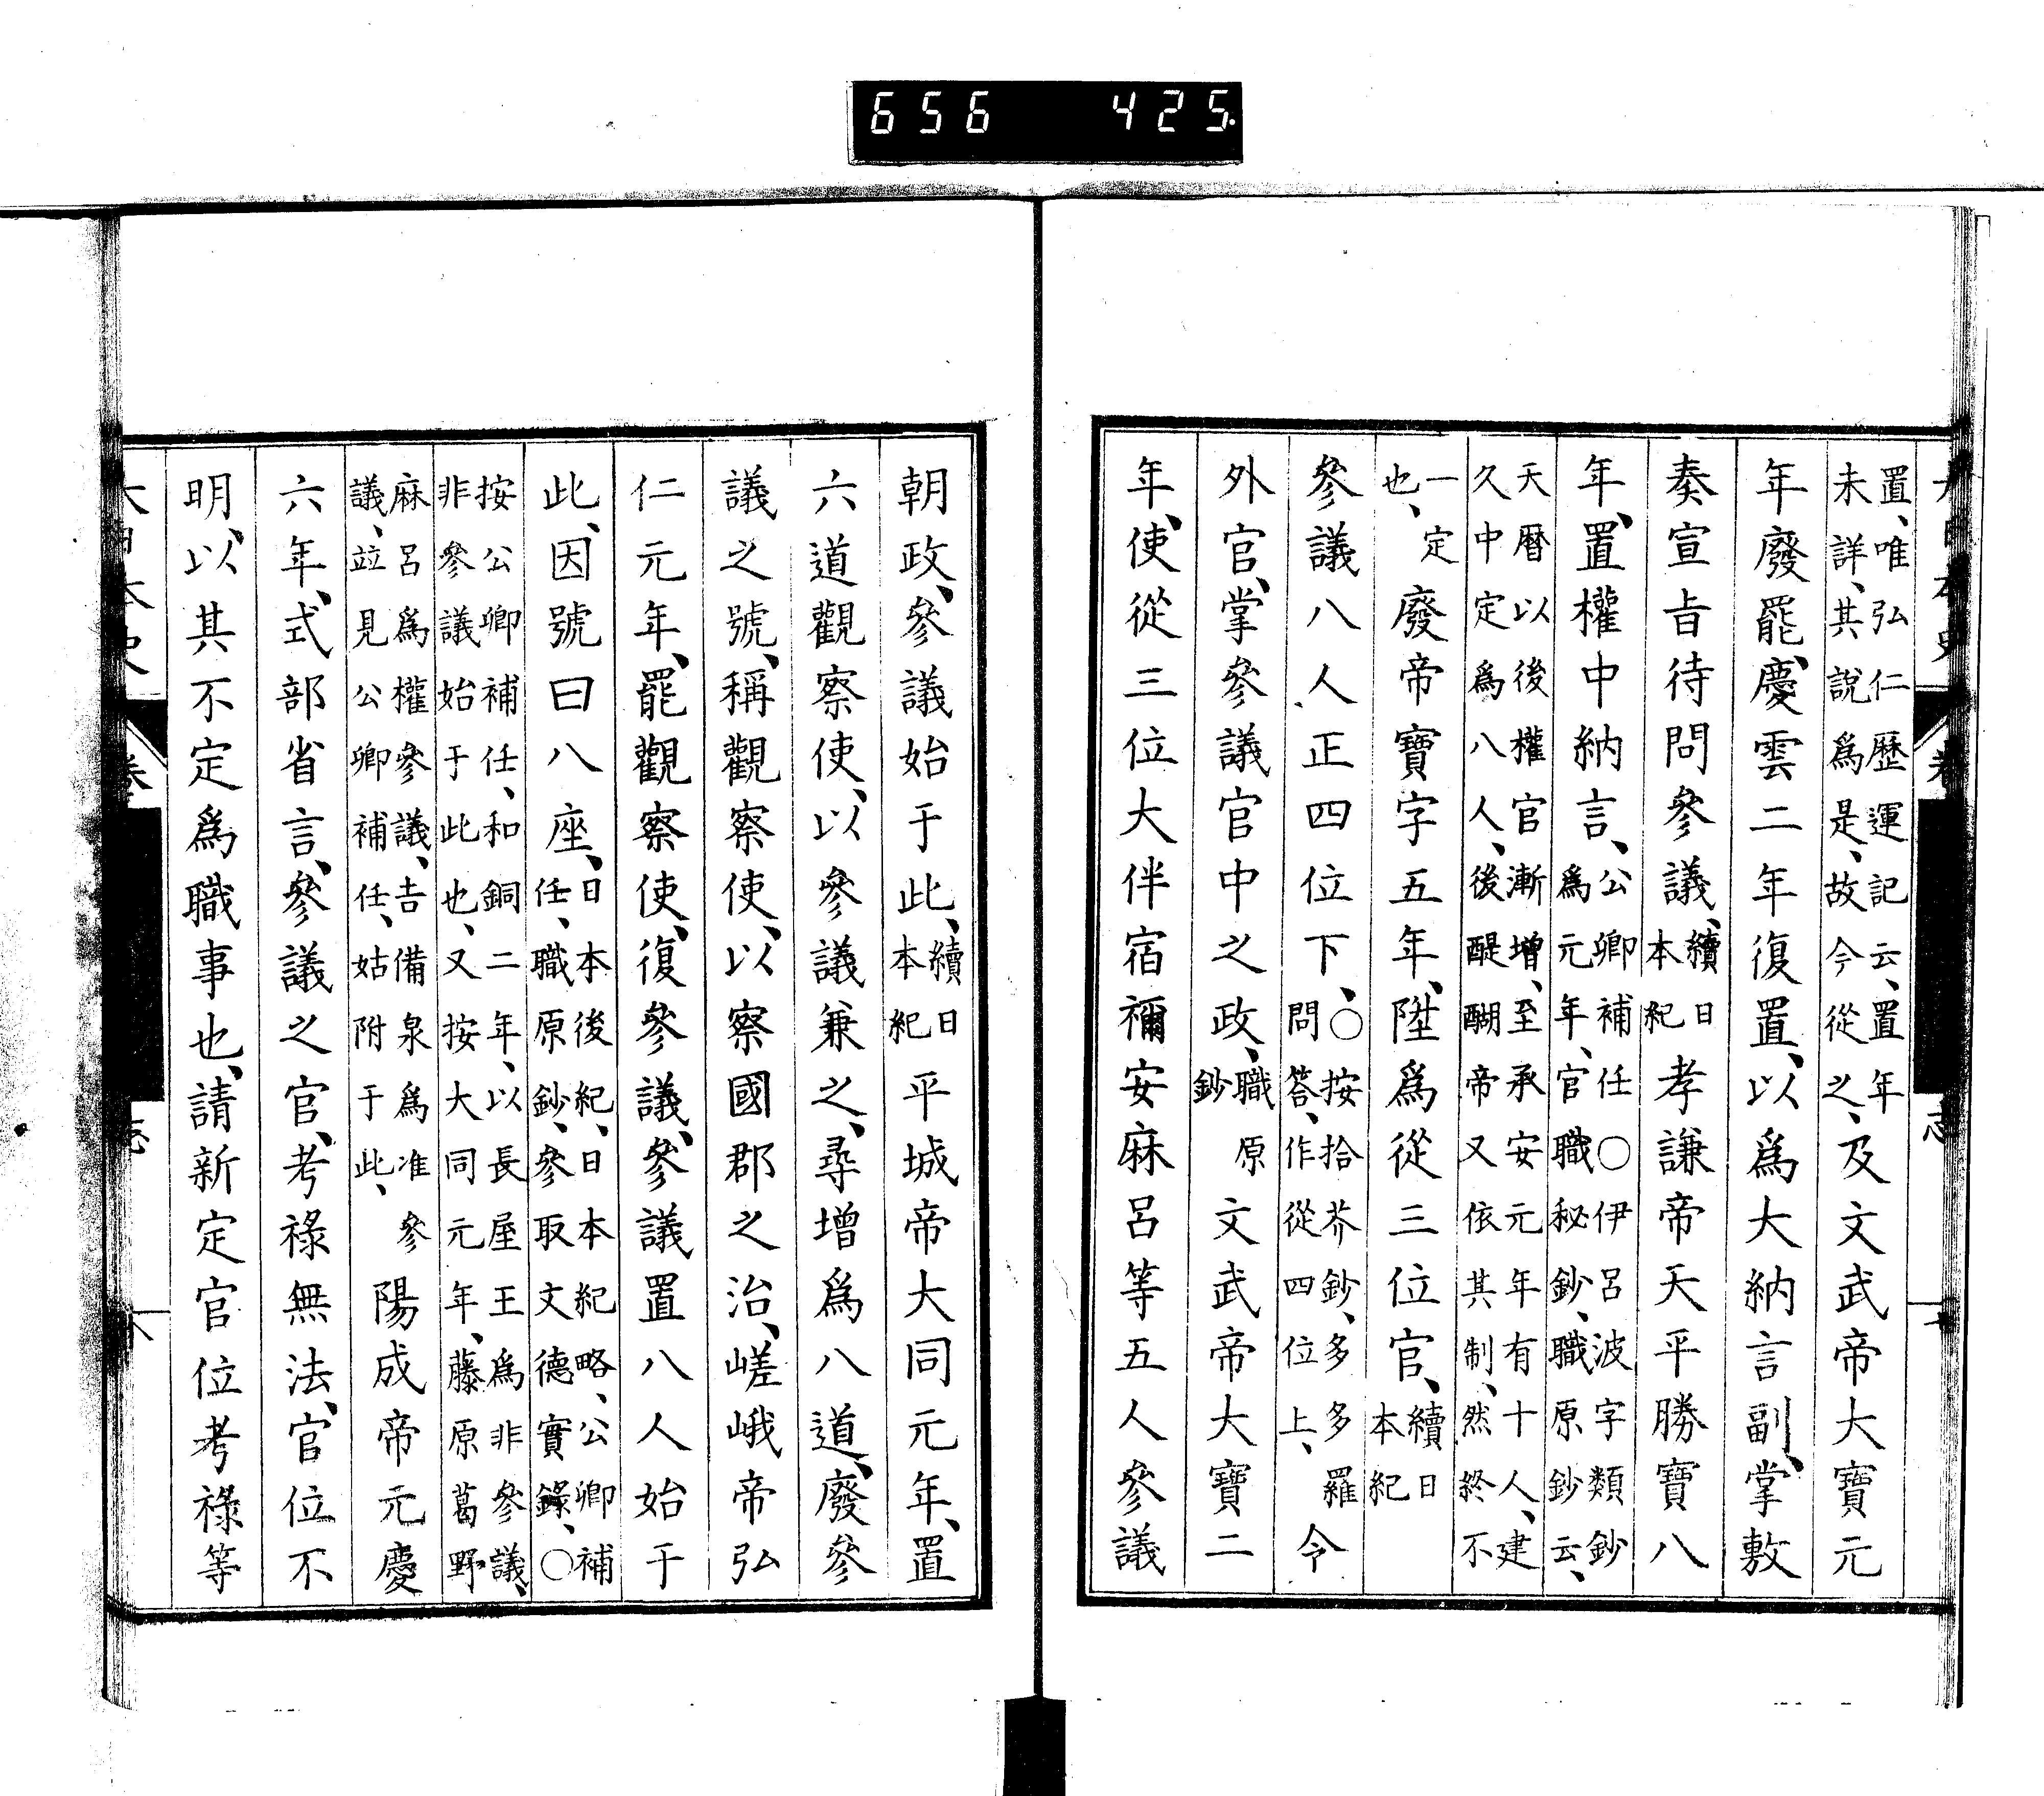 656 425.
置、唯弘仁歷運記云、置年
未詳、其說爲是、故今從之、及文武帝大寶元
年廢罷、慶雲二年復置、以爲大納言副、掌敷
奏宣旨待問參議、續日本紀孝謙帝天平勝寶八
年、置權中納言、公卿補任○伊呂波字類鈔
爲元年、官職秘鈔、職原鈔云、
天曆以後權官漸增、至承安元年有十人、建
久中定爲八人、後醍醐帝又依其制、然終不
一定也、廢帝寶字五年、陞爲從三位官、續日本紀
參議八人正四位下、○按拾芥鈔、多多羅問答、作從四位上、令
外官、掌參議官中之政、職原鈔文武帝大寶二
年、使從三位大伴宿禰安麻呂等五人參議
朝政、參議始于此、續日本紀平城帝大同元年、置
六道觀察使、以參議兼之、尋增爲八道、廢參
議之號、稱觀察使、以察國郡之治、嵯峨帝弘
仁元年、罷觀察使、復參議、參議置八人始于
此、因號曰八座、日本後紀、日本紀略、公卿補
任、職原鈔、參取文德實錄、○
按公卿補任、和銅二年、以長屋王爲非參議、
非參議始于此也、又按大同元年、藤原葛野
麻呂爲權參議、吉備泉爲准參
議、竝見公卿補任、姑附于此、陽成帝元慶
六年、式部省言、參議之官、考祿無法、官位不
明、以其不定爲職事也、請新定官位考祿等